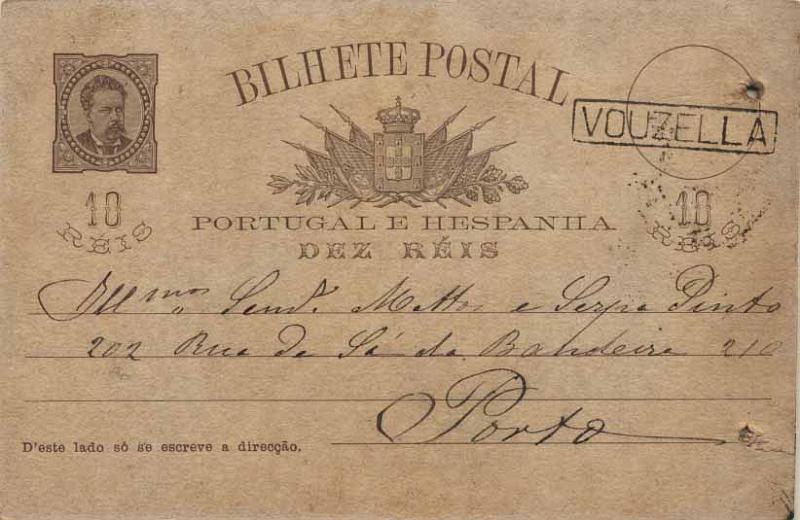 BILHETE POSTAL
VOUZELLA
10 RÉIS
10 RÉIS
PORTUGAL E HESPANHA
DEZ RÉIS
Illmos Senr. Mattos e Serpa Pinto
202 Rua de Sá da Bandeira 210
Porto
D'este lado só se escreve a direcção.